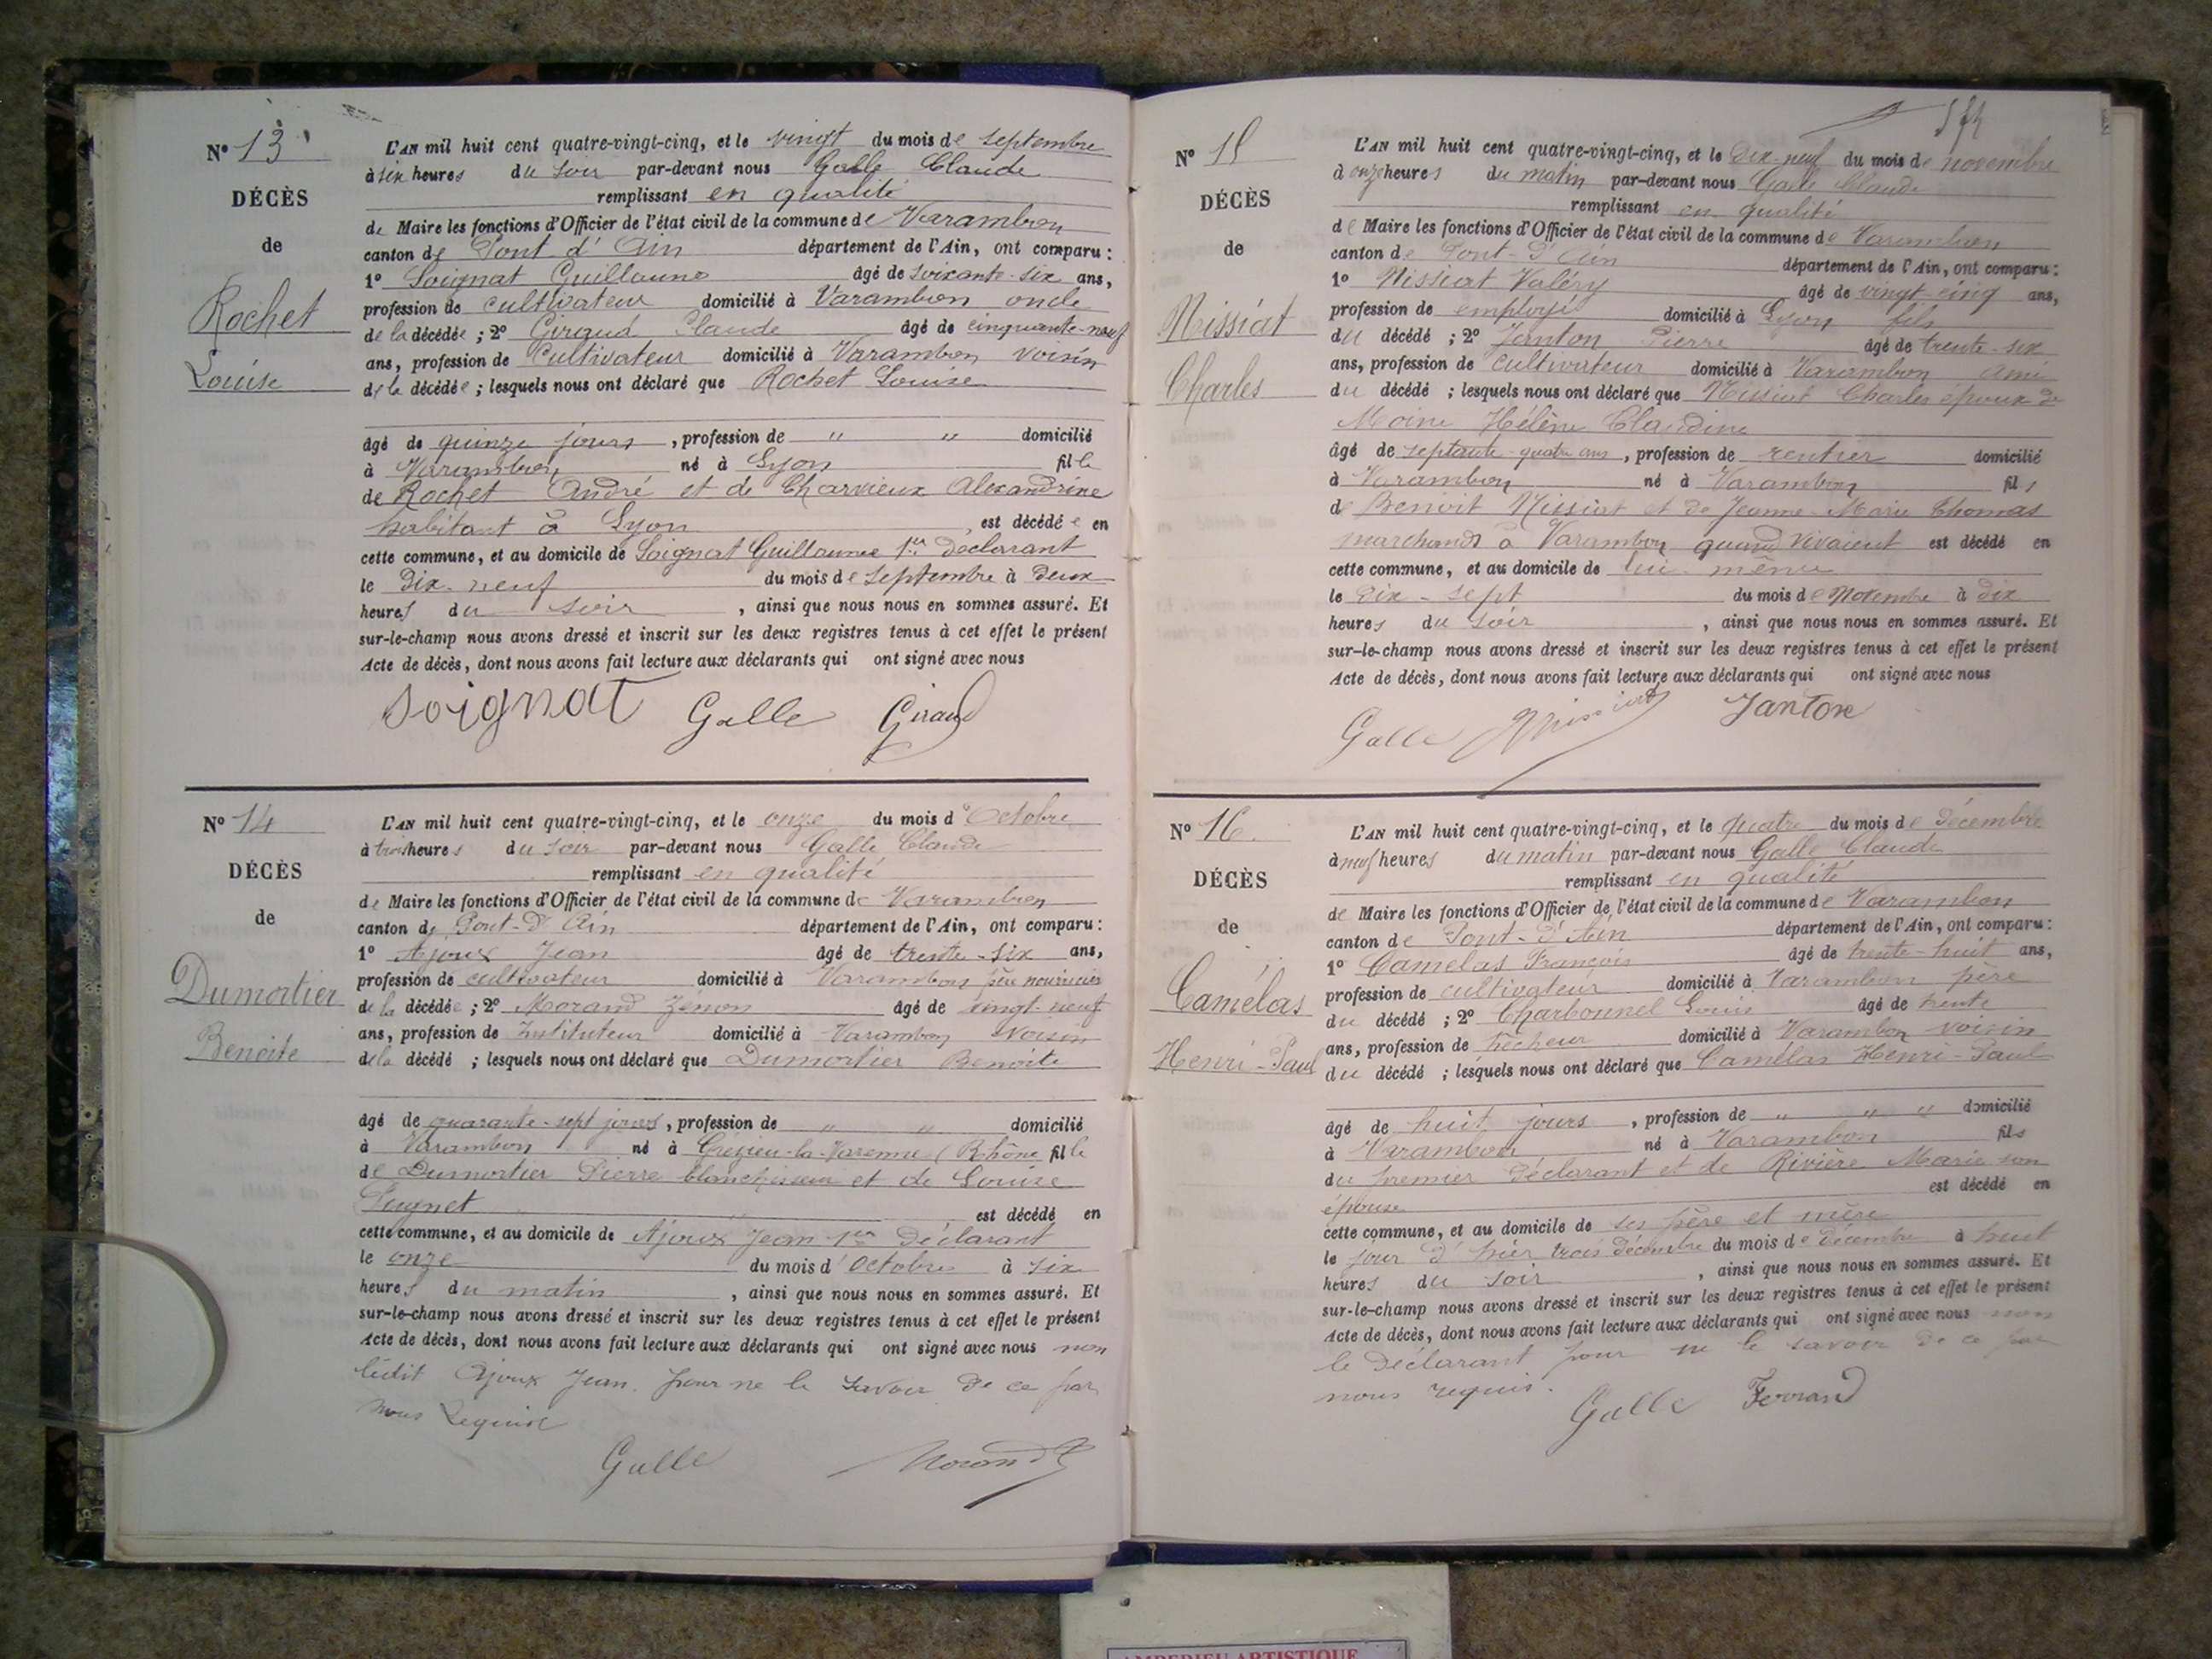 N° 13
DÉCÈS
de
Rochet
Louise
L'AN mil huit cent quatre-vingt-cinq, et le vingt du mois de septembre
à six heures du soir par-devant nous Galle Claude
remplissant en qualité
de Maire les fonctions d'Officier de l'état civil de la commune de Varambon
canton de Pont d'Ain département de l'Ain, ont comparu :
1° Soignat Guillaume âgé de soixante-six ans,
profession de cultivateur domicilié à Varambon oncle
de la décédée ; 2° Giraud Claude âgé de cinquante-neuf
ans, profession de Cultivateur domicilié à Varambon voisin
de la décédée ; lesquels nous ont déclaré que Rochet Louise
âgé de quinze jours , profession de " " domicilié
à Varambon né à Lyon fille
de Rochet André et de Charvieux Alexandrine
habitant à Lyon est décédée en
cette commune, et au domicile de Soignat Guillaume 1er déclarant
le dix-neuf du mois de septembre à deux
heures du soir , ainsi que nous nous en sommes assuré. Et
sur-le-champ nous avons dressé et inscrit sur les deux registres tenus à cet effet le présent
Acte de décès, dont nous avons fait lecture aux déclarants qui ont signé avec nous
Soignat Galle Giraud
N° 14
DÉCÈS
de
Dumortier
Benoite
L'AN mil huit cent quatre-vingt-cinq, et le onze du mois d'Octobre
à trois heures du soir par-devant nous Galle Claude
remplissant en qualité
de Maire les fonctions d'Officier de l'état civil de la commune de Varambon
canton de Pont-d'Ain département de l'Ain, ont comparu :
1° Ajoux Jean âgé de trente-six ans,
profession de cultivateur domicilié à Varambon père nourricier
de la décédée ; 2° Morand Zenon âgé de vingt-neuf
ans, profession de Instituteur domicilié à Varambon voisin
de la décédé ; lesquels nous ont déclaré que Dumortier Benoite
âgé de quarante-sept jours , profession de " " domicilié
à Varambon né à Grézieu-la-Varenne (Rhône fille
de Dumortier Pierre blanchisseur et de Louise
est décédé en
cette commune, et au domicile de Ajoux Jean 1er Déclarant
le onze du mois d'Octobre à six
heures du matin , ainsi que nous nous en sommes assuré. Et
sur-le-champ nous avons dressé et inscrit sur les deux registres tenus à cet effet le présent
Acte de décès, dont nous avons fait lecture aux déclarants qui ont signé avec nous non
ledit Ajoux Jean pour ne le savoir de ce par
nous Requis
Galle Morand
N° 15
DÉCÈS
de
Nissiat
Charles
L'AN mil huit cent quatre-vingt-cinq, et le dix-neuf du mois de novembre
à onze heures du matin par-devant nous Galle Claude
remplissant en qualité
de Maire les fonctions d'Officier de l'état civil de la commune de Varambon
canton de Pont-d'Ain département de l'Ain, ont comparu :
1° Nissiat Valéry âgé de vingt-cinq ans,
profession de employé domicilié à Lyon fils
du décédé ; 2° Janton Pierre âgé de trente-six
ans, profession de cultivateur domicilié à Varambon ami
du décédé ; lesquels nous ont déclaré que Nissiat Charles époux de
Moine Hélène Claudine
âgé de septante-quatre ans , profession de rentier domicilié
à Varambon né à Varambon fils
de Benoit Nissiat et de Jeanne-Marie Thomas
marchands à Varambon quand vivaient est décédé en
cette commune, et au domicile de lui-même
le dix-sept du mois de Novembre à dix
heures du soir , ainsi que nous nous en sommes assuré. Et
sur-le-champ nous avons dressé et inscrit sur les deux registres tenus à cet effet le présent
Acte de décès, dont nous avons fait lecture aux déclarants qui ont signé avec nous
Galle Nissiat Janton
N° 16
DÉCÈS
de
Camélas
Henri-Paul
L'AN mil huit cent quatre-vingt-cinq, et le quatre du mois de décembre
à neuf heures du matin par-devant nous Galle Claude
remplissant en qualité
de Maire les fonctions d'Officier de l'état civil de la commune de Varambon
canton de Pont-d'Ain département de l'Ain, ont comparu :
1° Camelas François âgé de trente-huit ans,
profession de cultivateur domicilié à Varambon père
du décédé ; 2° Charbonnel Louis âgé de trente
ans, profession de pêcheur domicilié à Varambon voisin
du décédé ; lesquels nous ont déclaré que Camélas Henri-Paul
âgé de huit jours , profession de " " " domicilié
à Varambon né à Varambon fils
du premier déclarant et de Rivière Marie son
épouse est décédé en
cette commune, et au domicile de ses père et mère
le jour d'hier trois décembre du mois de décembre à huit
heures du soir , ainsi que nous nous en sommes assuré. Et
sur-le-champ nous avons dressé et inscrit sur les deux registres tenus à cet effet le présent
Acte de décès, dont nous avons fait lecture aux déclarants qui ont signé avec nous non
le Déclarant pour ne le savoir de ce par
nous requis.
Galle Ferrand
AMBERIEU ARTISTIQUE